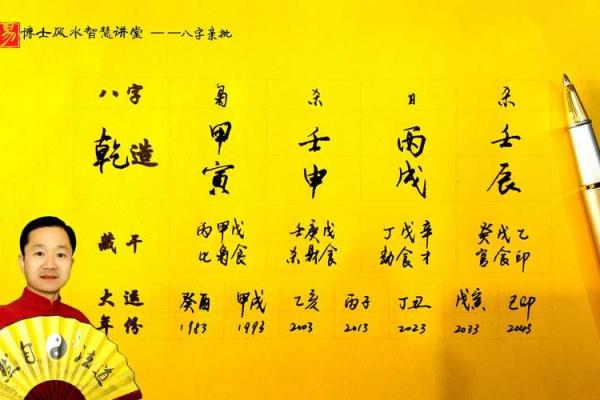 易 博士风水智慧讲堂 ——八字亲批
八字 枭 杀 日 杀
乾造 甲 壬 丙 壬
寅 申 戌 辰
藏干 丙甲戊 壬庚戊 丁戊辛 癸戊乙
比枭食 杀财食 劫食才 官食印
大运 癸酉 甲戌 乙亥 丙子 丁丑 戊寅 己卯
年份 1983 1993 2003 2013 2023 2033 2043
道法自然